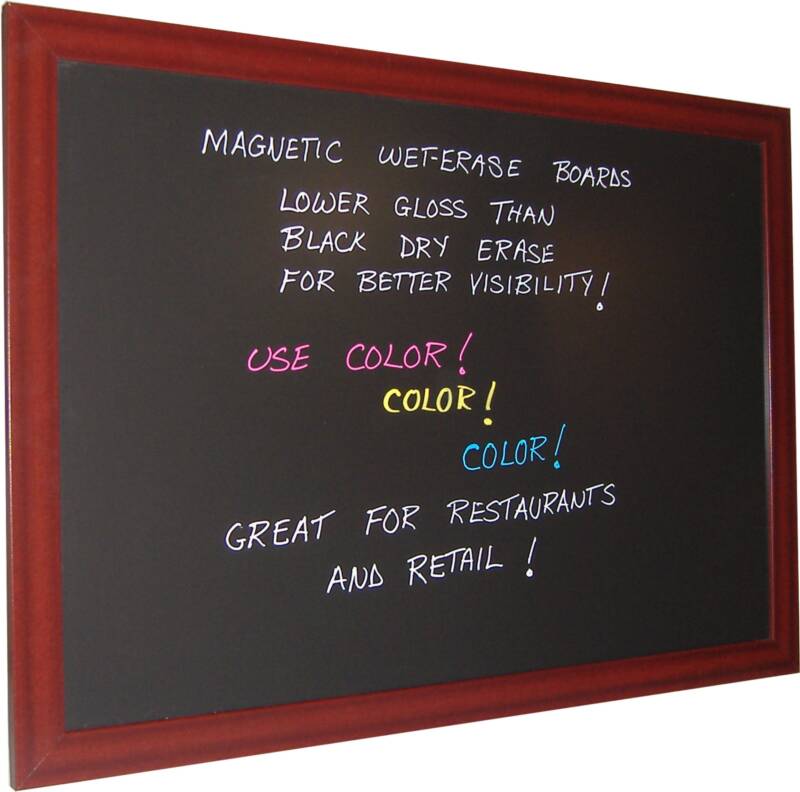 MAGNETIC WET-ERASE BOARDS
LOWER GLOSS THAN
BLACK DRY ERASE
FOR BETTER VISIBILITY!
USE COLOR!
COLOR!
COLOR!
GREAT FOR RESTAURANTS
AND RETAIL!